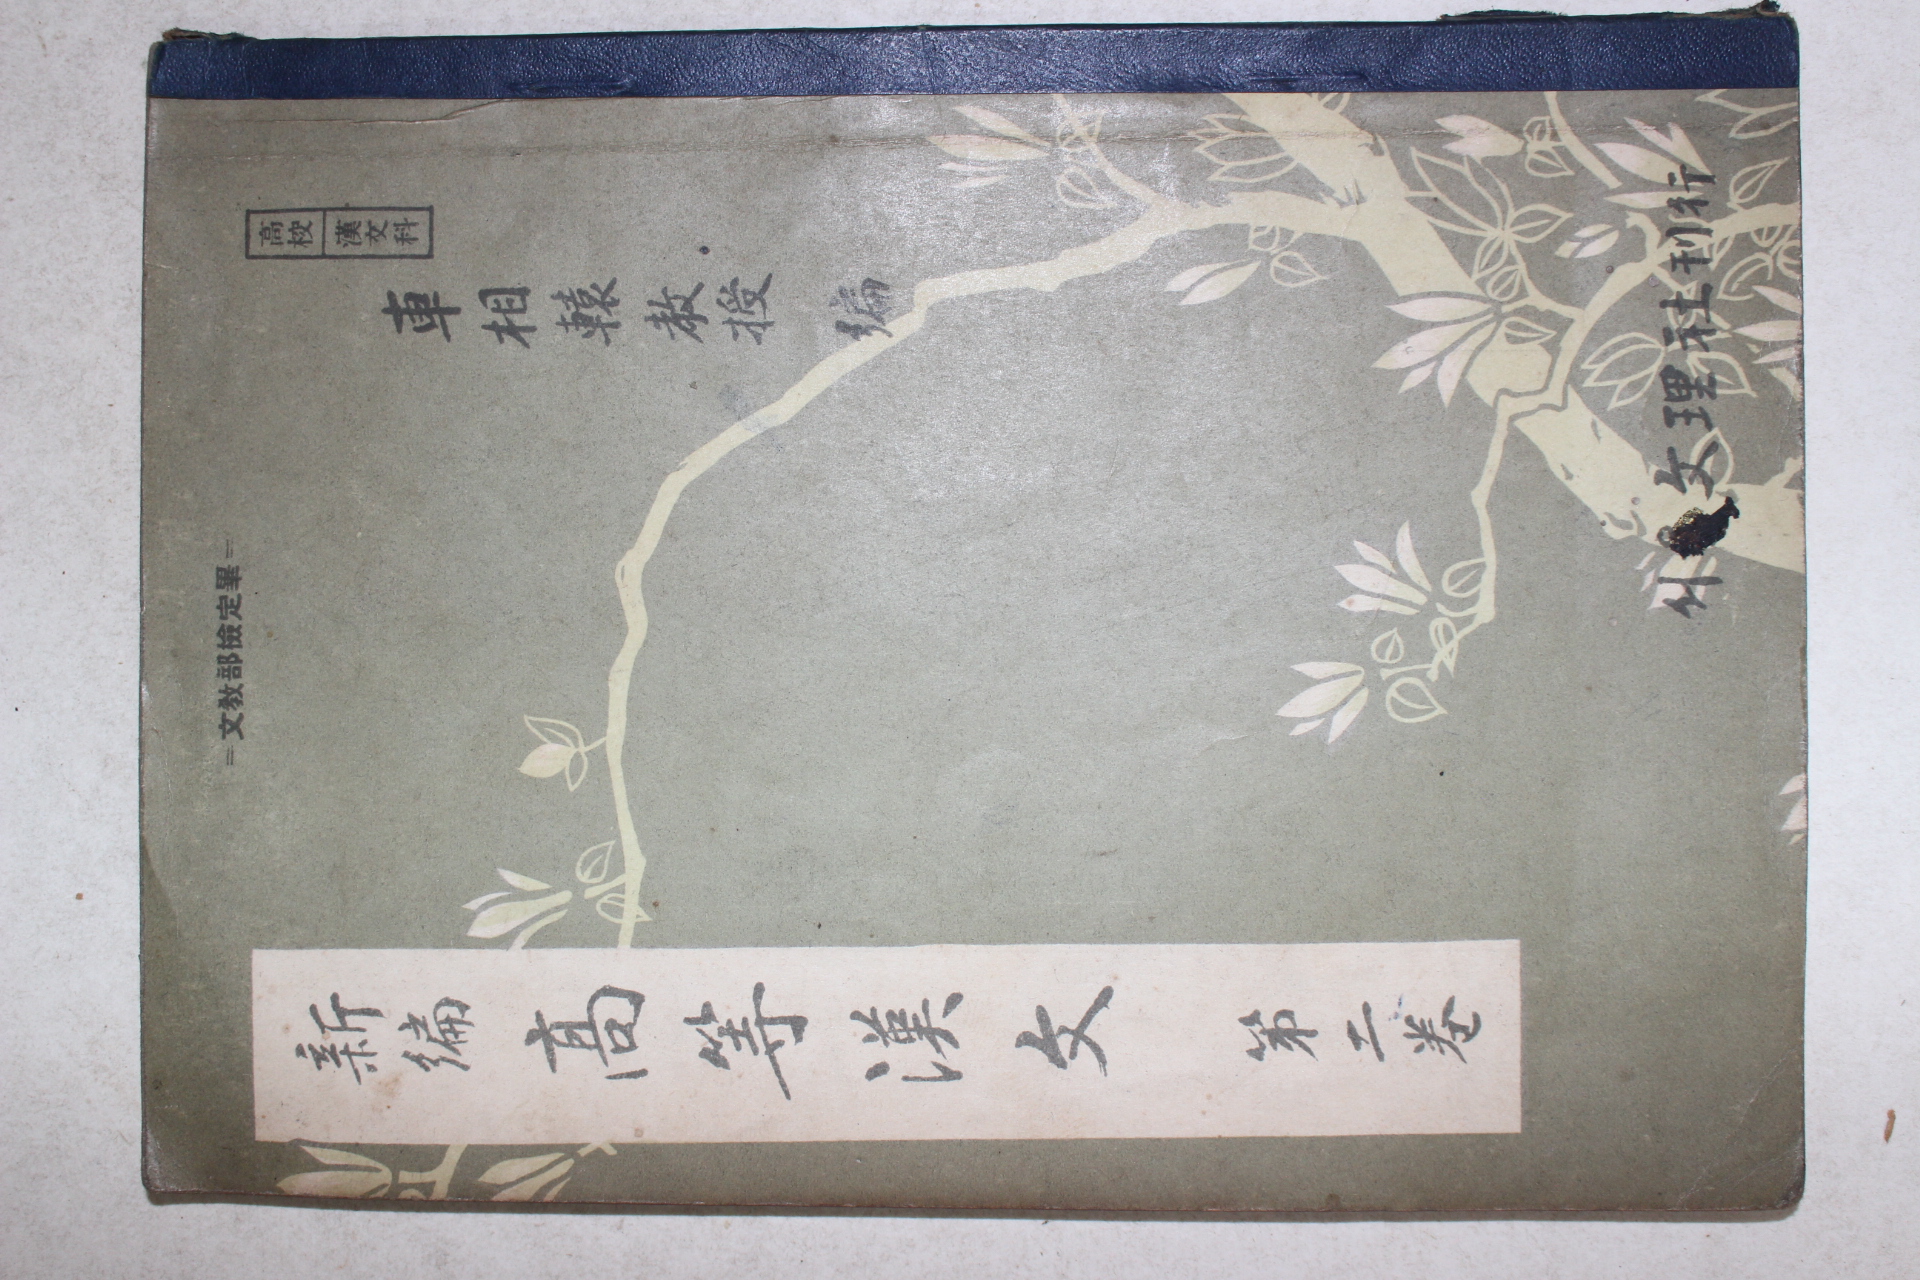 =文敎部檢定畢=
高校 漢文科
車相轅敎授 編
新編 高等漢文 第二卷
文理社刊行